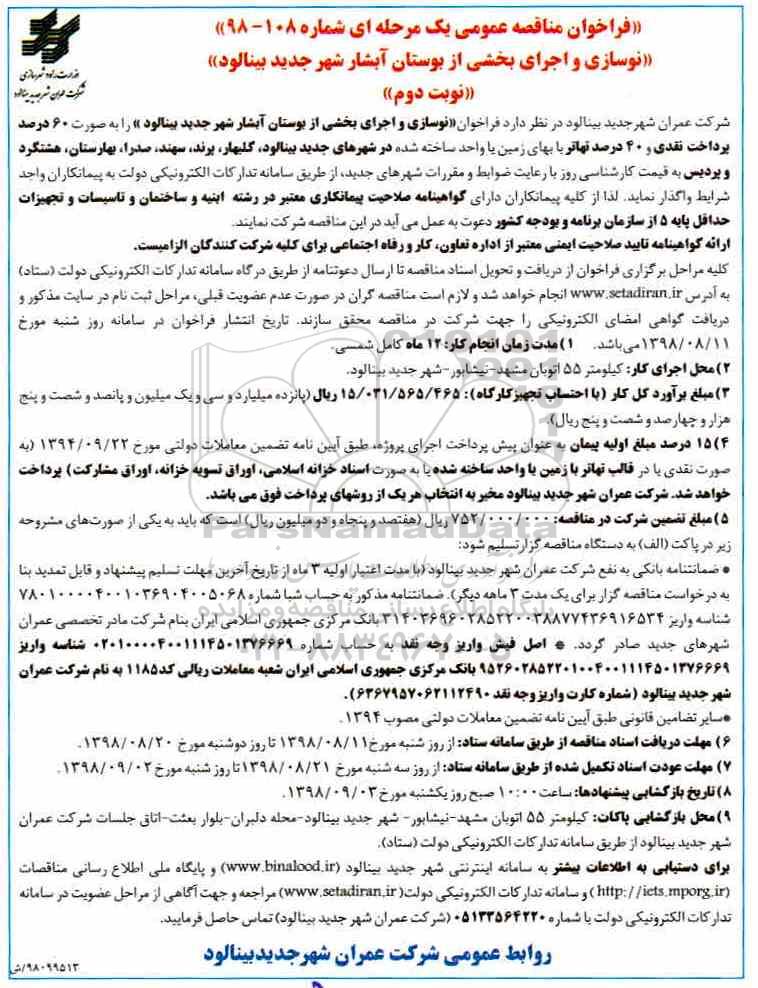 «فراخوان مناقصه عمومی یک مرحله ای شماره ۱۰۸-۹۸»
«نوسازی و اجرای بخشی از بوستان آبشار شهر جدید بینالود»
«نوبت دوم»
وزارت راه و شهرسازی
شرکت عمران شهر جدید بینالود
شرکت عمران شهرجدید بینالود در نظر دارد فراخوان«نوسازی و اجرای بخشی از بوستان آبشار شهر جدید بینالود » را به صورت ۶۰ درصد
پرداخت نقدی و ۴۰ درصد تهاتر با بهای زمین یا واحد ساخته شده در شهرهای جدید بینالود، گلبهار، پرند، سهند، صدرا، بهارستان، هشتگرد
و پردیس به قیمت کارشناسی روز با رعایت ضوابط و مقررات شهرهای جدید، از طریق سامانه تدارکات الکترونیکی دولت به پیمانکاران واجد
شرایط واگذار نماید. لذا از کلیه پیمانکاران دارای گواهینامه صلاحیت پیمانکاری معتبر در رشته ابنیه و ساختمان و تاسیسات و تجهیزات
حداقل پایه ۵ از سازمان برنامه و بودجه کشور دعوت به عمل می آید در این مناقصه شرکت نمایند.
ارائه گواهینامه تایید صلاحیت ایمنی معتبر از اداره تعاون، کار و رفاه اجتماعی برای کلیه شرکت کنندگان الزامیست.
کلیه مراحل برگزاری فراخوان از دریافت و تحویل اسناد مناقصه تا ارسال دعوتنامه از طریق درگاه سامانه تدارکات الکترونیکی دولت (ستاد)
به آدرس www.setadiran.ir انجام خواهد شد و لازم است مناقصه گران در صورت عدم عضویت قبلی، مراحل ثبت نام در سایت مذکور و
دریافت گواهی امضای الکترونیکی را جهت شرکت در مناقصه محقق سازند. تاریخ انتشار فراخوان در سامانه روز شنبه مورخ
۱۳۹۸/۰۸/۱۱می‌باشد. ۱) مدت زمان انجام کار: ۱۲ ماه کامل شمسی.
۲) محل اجرای کار: کیلومتر ۵۵ اتوبان مشهد-نیشابور-شهر جدید بینالود.
۳) مبلغ برآورد کل کار (با احتساب تجهیزکارگاه): ۱۵/۰۳۱/۵۶۵/۴۶۵ ریال (پانزده میلیارد و سی و یک میلیون و پانصد و شصت و پنج
هزار و چهارصد و شصت و پنج ریال).
۴) ۱۵ درصد مبلغ اولیه پیمان به عنوان پیش پرداخت اجرای پروژه، طبق آیین نامه تضمین معاملات دولتی مورخ ۱۳۹۴/۰۹/۲۲ (به
صورت نقدی یا در قالب تهاتر با زمین یا واحد ساخته شده یا به صورت اسناد خزانه اسلامی، اوراق تسویه خزانه، اوراق مشارکت) پرداخت
خواهد شد. شرکت عمران شهر جدید بینالود مخیر به انتخاب هر یک از روشهای پرداخت فوق می باشد.
۵) مبلغ تضمین شرکت در مناقصه: ۷۵۲/۰۰۰/۰۰۰ ریال (هفتصد و پنجاه و دو میلیون ریال) است که باید به یکی از صورت‌های مشروحه
زیر در پاکت (الف) به دستگاه مناقصه گزار تسلیم شود:
● ضمانتنامه بانکی به نفع شرکت عمران شهر جدید بینالود (با مدت اعتبار اولیه ۳ ماه از تاریخ آخرین مهلت تسلیم پیشنهاد و قابل تمدید بنا
به درخواست مناقصه گزار برای یک مدت ۳ ماهه دیگر). ضمانتنامه مذکور به حساب شبا شماره ۷۸۰۱۰۰۰۰۴۰۰۱۰۳۶۹۰۴۰۰۵۰۶۸
شناسه واریز ۳۱۴۰۳۶۹۶۰۲۸۵۲۲۰۰۳۸۸۷۷۴۳۶۹۱۶۵۳۴ بانک مرکزی جمهوری اسلامی ایران بنام شرکت مادر تخصصی عمران
شهرهای جدید صادر گردد. ● اصل فیش واریز وجه نقد به حساب شماره ۰۲۰۱۰۰۰۰۴۰۰۱۱۱۴۵۰۱۳۷۶۶۶۹ شناسه واریز
۹۵۲۶۰۲۸۵۲۲۰۱۰۰۴۰۰۱۱۱۴۵۰۱۳۷۶۶۶۹ بانک مرکزی جمهوری اسلامی ایران شعبه معاملات ریالی کد۱۱۸۵ به نام شرکت عمران
شهر جدید بینالود (شماره کارت واریز وجه نقد ۶۳۶۷۹۵۷۰۶۲۱۱۲۴۹۰).
●سایر تضامین قانونی طبق آیین نامه تضمین معاملات دولتی مصوب ۱۳۹۴.
۶) مهلت دریافت اسناد مناقصه از طریق سامانه ستاد: از روز شنبه مورخ۱۳۹۸/۰۸/۱۱ تا روز دوشنبه مورخ ۱۳۹۸/۰۸/۲۰.
۷) مهلت عودت اسناد تکمیل شده از طریق سامانه ستاد: از روز سه شنبه مورخ ۱۳۹۸/۰۸/۲۱تا روز شنبه مورخ ۱۳۹۸/۰۹/۰۲.
۸) تاریخ بازگشایی پیشنهادها: ساعت ۱۰:۰۰ صبح روز یکشنبه مورخ ۱۳۹۸/۰۹/۰۳.
۹) محل بازگشایی پاکات: کیلومتر ۵۵ اتوبان مشهد-نیشابور- شهر جدید بینالود-محله دلبران-بلوار بعثت-اتاق جلسات شرکت عمران
شهر جدید بینالود از طریق سامانه تدارکات الکترونیکی دولت (ستاد).
برای دستیابی به اطلاعات بیشتر به سامانه اینترنتی شهر جدید بینالود (www.binalood.ir) و پایگاه ملی اطلاع رسانی مناقصات
(http://iets.mporg.ir) و سامانه تدارکات الکترونیکی دولت( www.setadiran.ir) مراجعه و جهت آگاهی از مراحل عضویت در سامانه
تدارکات الکترونیکی دولت با شماره ۰۵۱۳۳۵۶۴۲۲۰ (شرکت عمران شهر جدید بینالود) تماس حاصل فرمایید.
روابط عمومی شرکت عمران شهرجدیدبینالود
۹۸۰۹۹۵۱۳/ش
ParsNamadData
پایگاه اطلاع رسانی مناقصه و مزایده
۰۲۱-۸۸۳۴۹۶۷۰-۵